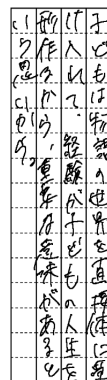 子どもは物語の世界を直接体に受
け入れて、経験が子どもの人生を
形作るから、重要な意味があると
いう思いがある。